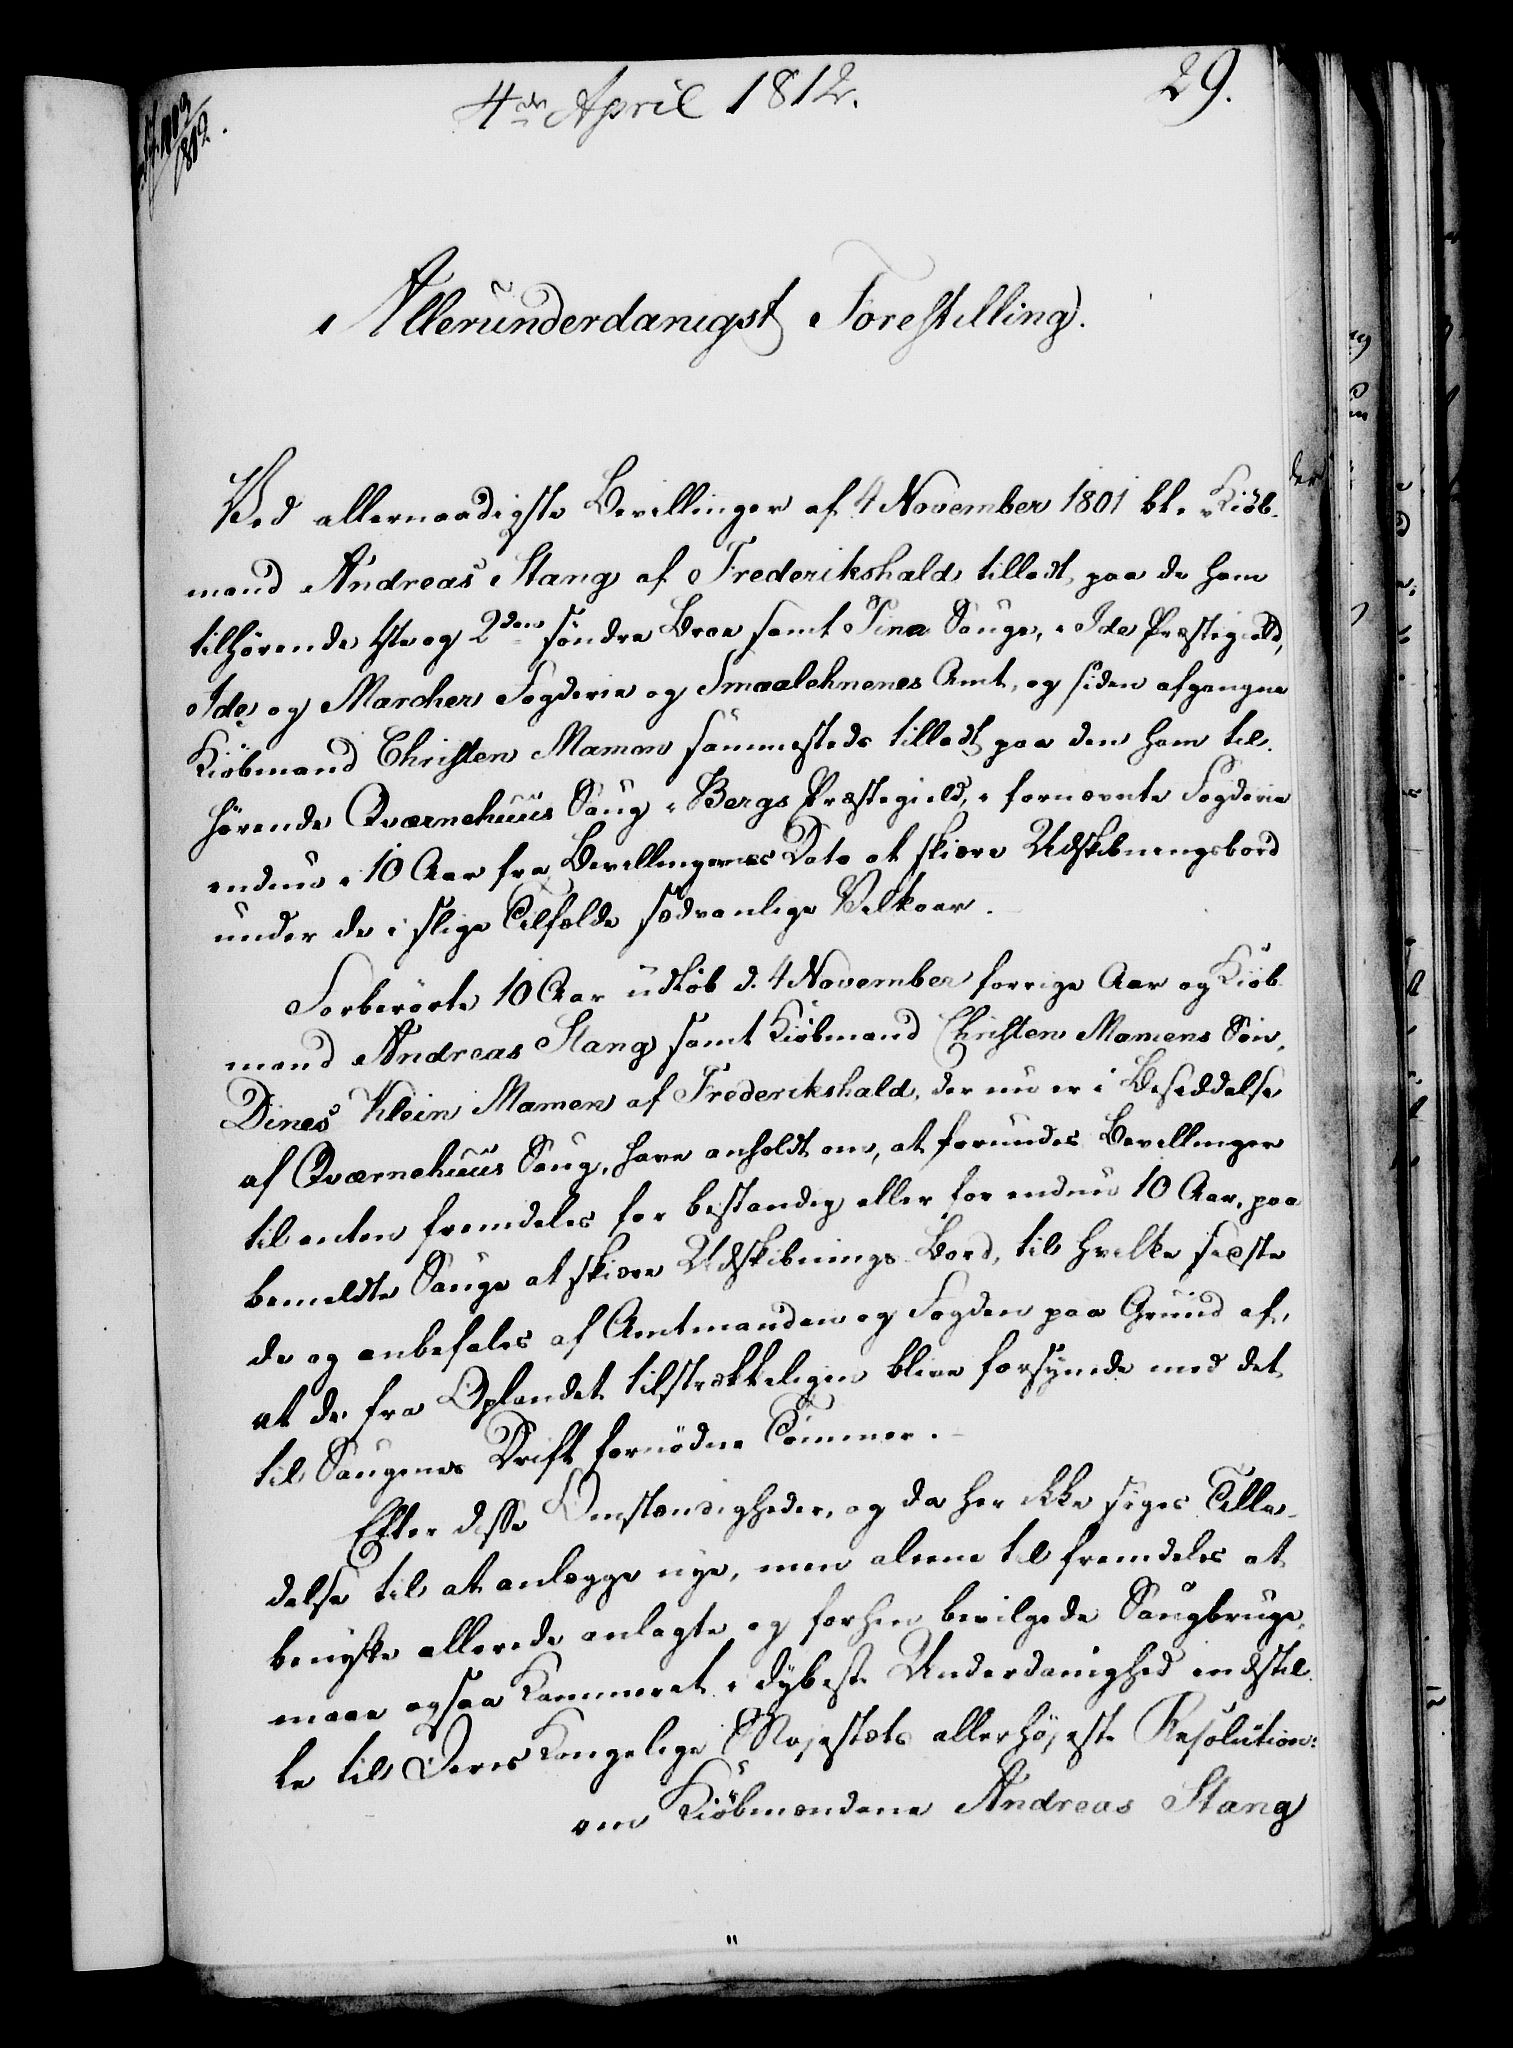 4de April 1812.
29.
Allerunderdanigst Forestilling.
Ved allernaadigste Bevillinger af 4 November 1801 bl. Kiøb-
mand Andreas Stang af Frederikshald tilladt, paa de ham
tilhørende 1ste og 2den søndre Broe samt Tina Sauge, i Ide Præstegield,
Ide og Marcher Fogderie og Smaalehnenes Amt, og siden afgangne
Kiøbmand Christen Mamen sammesteds tilladt paa den ham til-
hørende Qværnehuus Saug i Bergs Præstegield, i fornævnte Fogderie
endnu i 10 Aar fra Bevillingernes Dato at skiære Udskibningsbord
under de i slige Tilfælde sædvanlige Vilkaar.
Forberørte 10 Aar udløb d. 4 November forrige Aar og Kiøb-
mand Andreas Stang samt Kiøbmand Christen Mamens Søn,
Dines Klein Mamen af Frederikshald, der nu er i Besiddelse
af Qværnehuus Saug, have anholdt om, at forundes Bevillinger
til enten fremdeles for bestandig eller for endnu 10 Aar, paa
bemeldte Sauge at skiære Udskibnings-Bord, til hvilke sidste
de og anbefales af Amtmanden og Fogden paa Grund af,
at de fra Oplandet tilstrækkeligen blive forsynede med det
til Saugenes Drift fornødne Tømmer.
Efter disse Omstændigheder, og da her ikke søges Tilla-
delse til at anlægge nye, men alene til fremdeles at
benytte allerede anlagte og forhen bevilgede Saugbruge,
maae ogsaa Kammeret i dybeste Underdanighed indstil-
le til Deres Kongelige Majestæts allerhøjeste Resolution:
om Kiøbmændene Andreas Stang